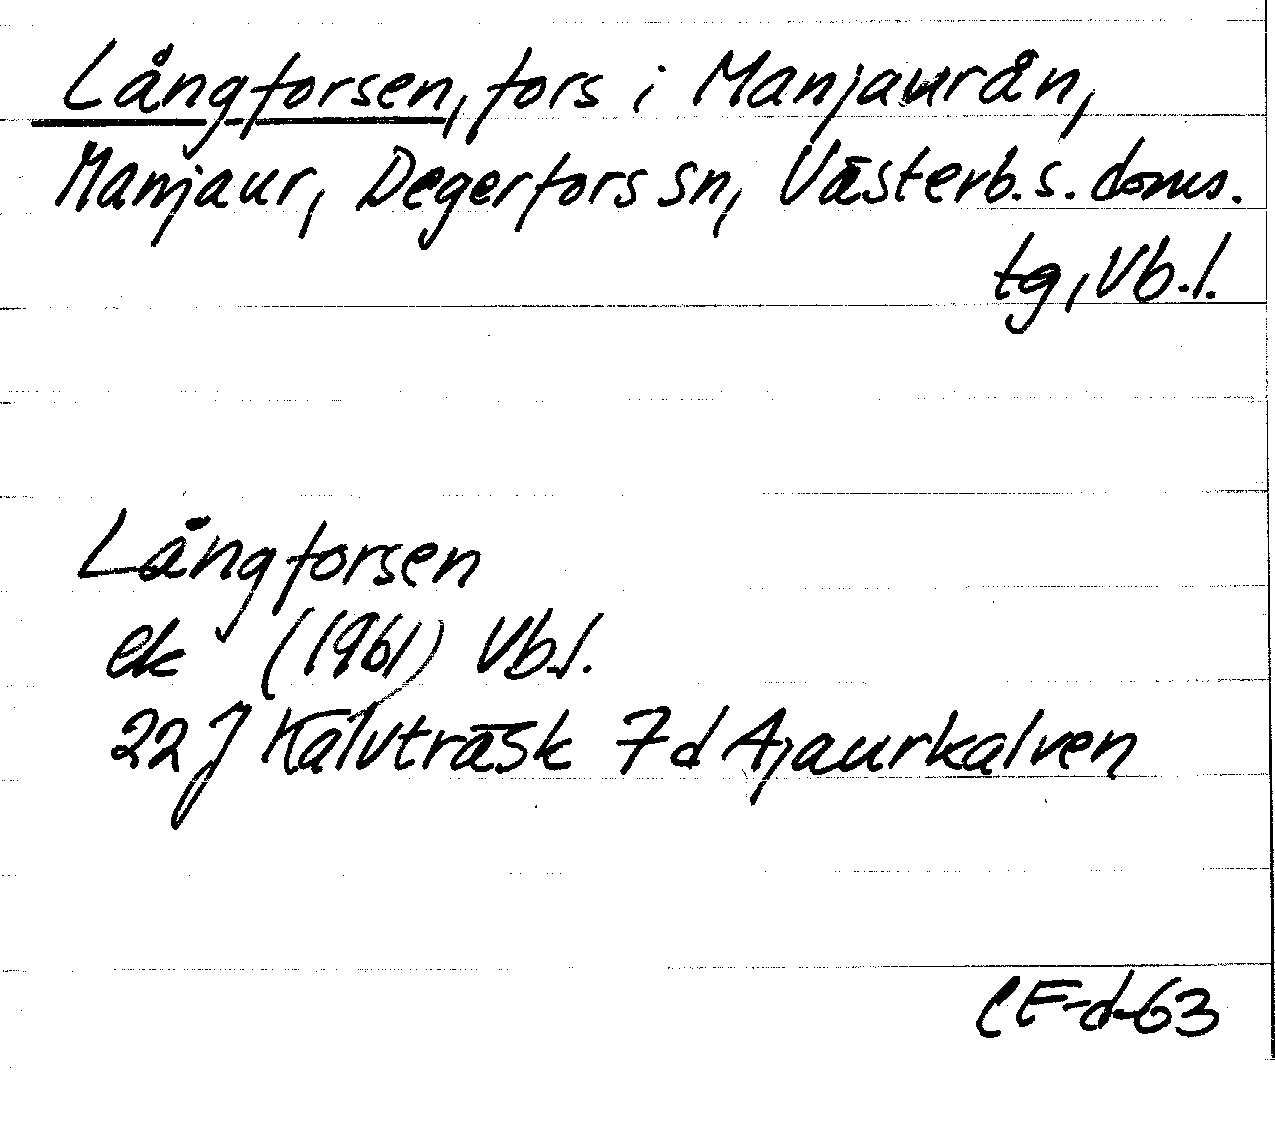 Långforsen, fors i Manjaurån,
Manjaur, Degerfors sn, Västerb. s. doms.
tg, Vb. l.
Långforsen
ek (1961) Vb. l.
22 J Kalvträsk 7d Ajaurkalven
CE-d-63